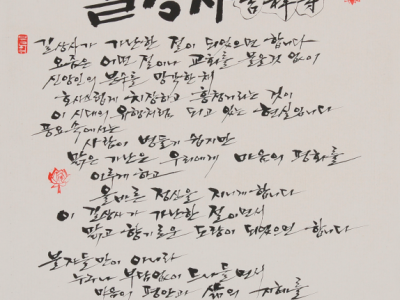 길상사
길상사가 가난한 절이 되었으면 합니다
요즘은 어떤 절이나 교회를 물을것 없이
신앙인의 분수를 망각한채
호사스럽게 치장하고 흥청거리는 것이
이 시대의 유행처럼 되고 있는 현실입니다
풍요속에서는
사람이 병들기 쉽지만
맑은 가난은 우리에게 마음의 평화를
이루게 하고
올바른 정신을 지니게 합니다
이 길상사가 가난한 절이면서
맑고 향기로운 도량이 되었으면 합니다
불자들만이 아니라
누구나 부담없이 드나들면서
마음의 평안과 삶의 지혜를